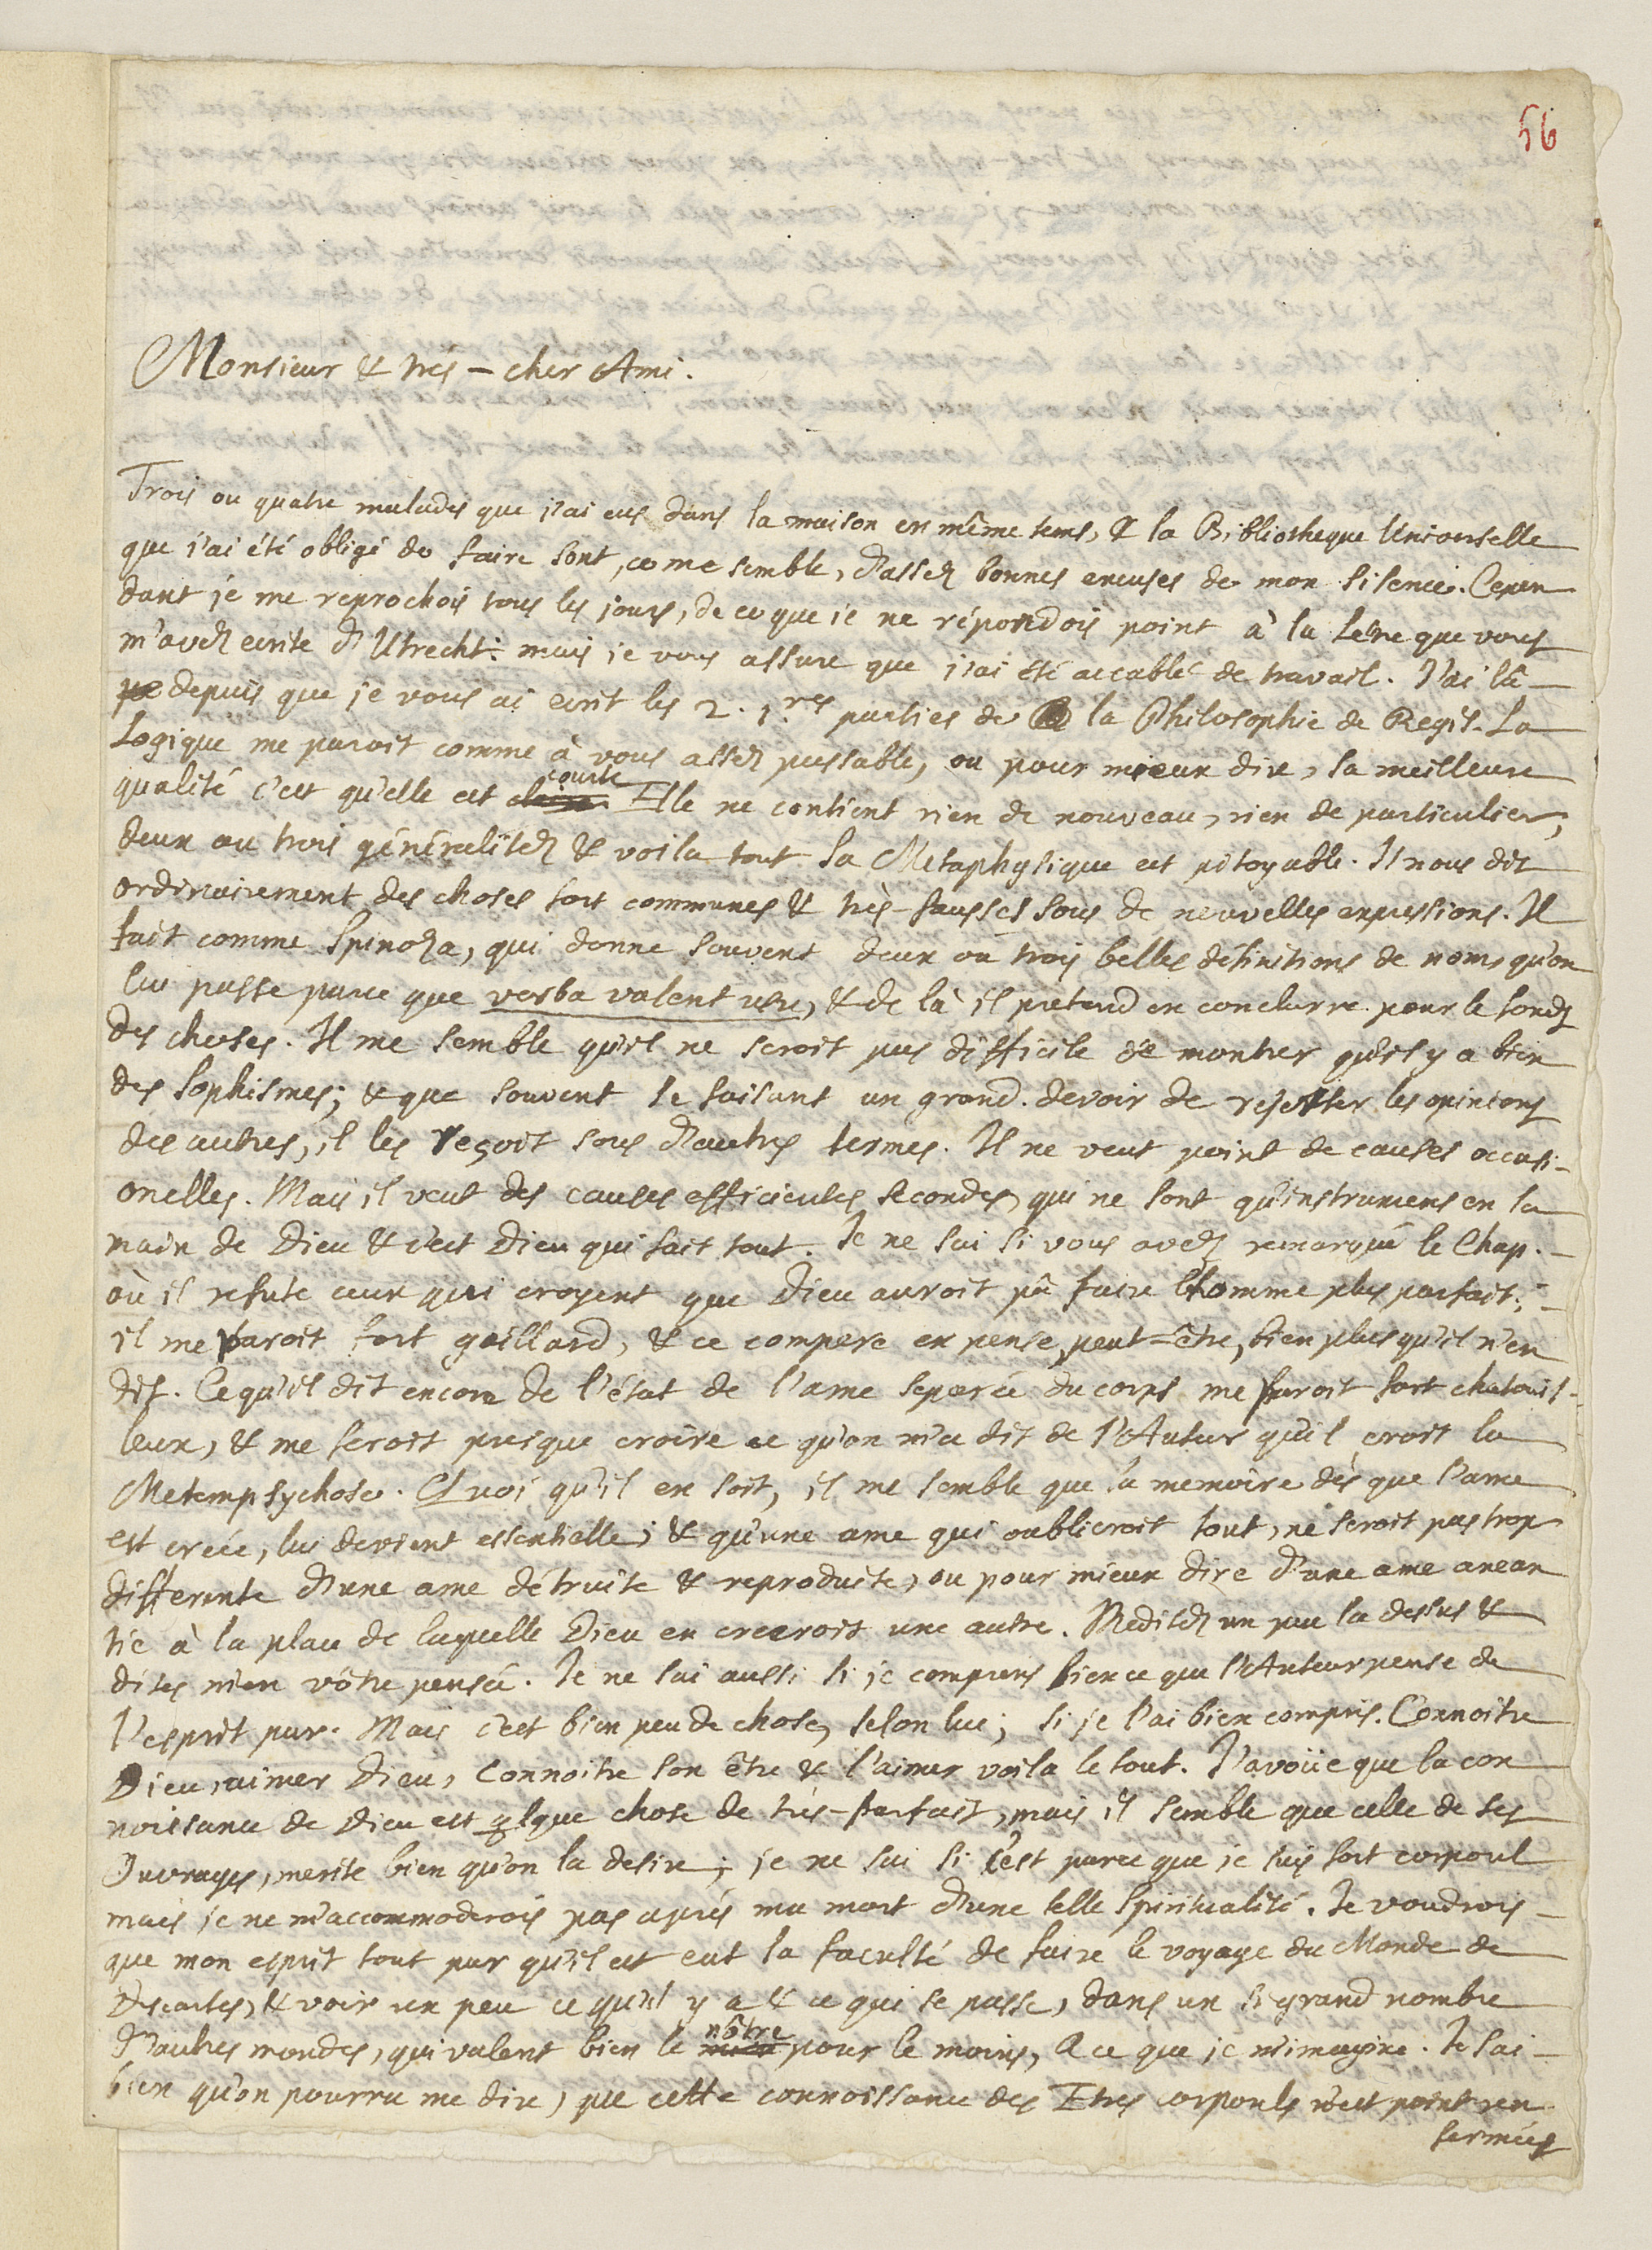 56
Monsieur & tres-cher Ami.
Trois ou quatre malades que j'ai eus dans la maison en même tems, & la Bibliotheque Universelle
que j'ai été obligé de faire sont, ce me semble, d'assez bonnes excuses de mon silence. Cepen
dant je me reprochois tous les jours, de ce que je ne répondois point à la letre que vous
m'avez ecrite d'Utrecht: mais je vous assure que j'ai été accablé de travail. J'ai lû
depuis que je vous ai ecrit les 2. 1.res parties de la Philosophie de Regis. La
Logique me paroit comme à vous assez passable, ou pour mieux dire, sa meilleure
qualité c'est qu'elle est courte Elle ne contient rien de nouveau, rien de particulier,
deux ou trois généralitez & voila tout sa Metaphysique est pitoyable. Il nous dit
ordinairement des choses fort communes & très-fausses sous de nouvelles expressions. Il
fait comme Spinoza, qui donne souvent deux ou trois belles définitions de noms qu'on
lui passe parce que verba valent usu, & de là il pretend en conclurre pour le fonds
des choses. Il me semble qu'il ne seroit pas difficile de montrer qu'il y a bien
des sophismes; & que souvent se faisant un grand devoir de rejetter les opinions
des autres, il les reçoit sous d'autres termes. Il ne veut point de causes occasi-
onelles. Mais il veut des causes efficientes secondes, qui ne sont qu'instrumens en la
main de Dieu & c'est Dieu qui fait tout. Je ne sai si vous avez remarqué le Chap.
où il refute ceux qui croyent que Dieu auroit pû faire l'homme plus parfait:
il me paroit fort gaillard, & ce compere en pense, peut-être, bien plus qu'il n'en
dit. Ce qu'il dit encore de l'état de l'ame separée du corps me paroit fort chatouil-
leux, & me feroit presque croire ce qu'on m'a dit de l'Auteur qu'il croit la
Metempsychose. Quoi qu'il en soit, il me semble que la memoire dès que l'ame
est créée, lui devient essentielle; & qu'une ame qui oublieroit tout, ne seroit pas trop
differente d'une ame détruite & reproduite, ou pour mieux dire d'une ame anean
tie à la place de laquelle Dieu en creeroit une autre. Meditez un peu la dessus &
dites m'en vôtre pensée. Je ne sai aussi si je comprens bien ce que l'Auteur pense de
l'esprit pur. Mais c'est bien peu de chose, selon lui; si je l'ai bien compris. Connoitre
Dieu, aimer Dieu, Connoitre son être & l'aimer voila le tout. J'avoüe que la con
noissance de Dieu est qlque chose de très-parfait, mais il semble que celle de ses
Ouvrages, merite bien qu'on la desire; je ne sai si c'est parce que je suis fort corporel
mais je ne m'accommoderois pas aprés ma mort d'une telle spiritualité. Je voudrois
que mon esprit tout pur qu'il est eut la faculté de faire le voyage du Monde de
Descartes, & voir un peu ce qu'il y a & ce qui se passe, dans un si grand nombre
d'autres mondes, qui valent bien le nôtre pour le moins, A ce que je m'imagine. Je sai
bien qu'on pourra me dire, que cette connoissance des Etres corporels n'est point ren
fermée